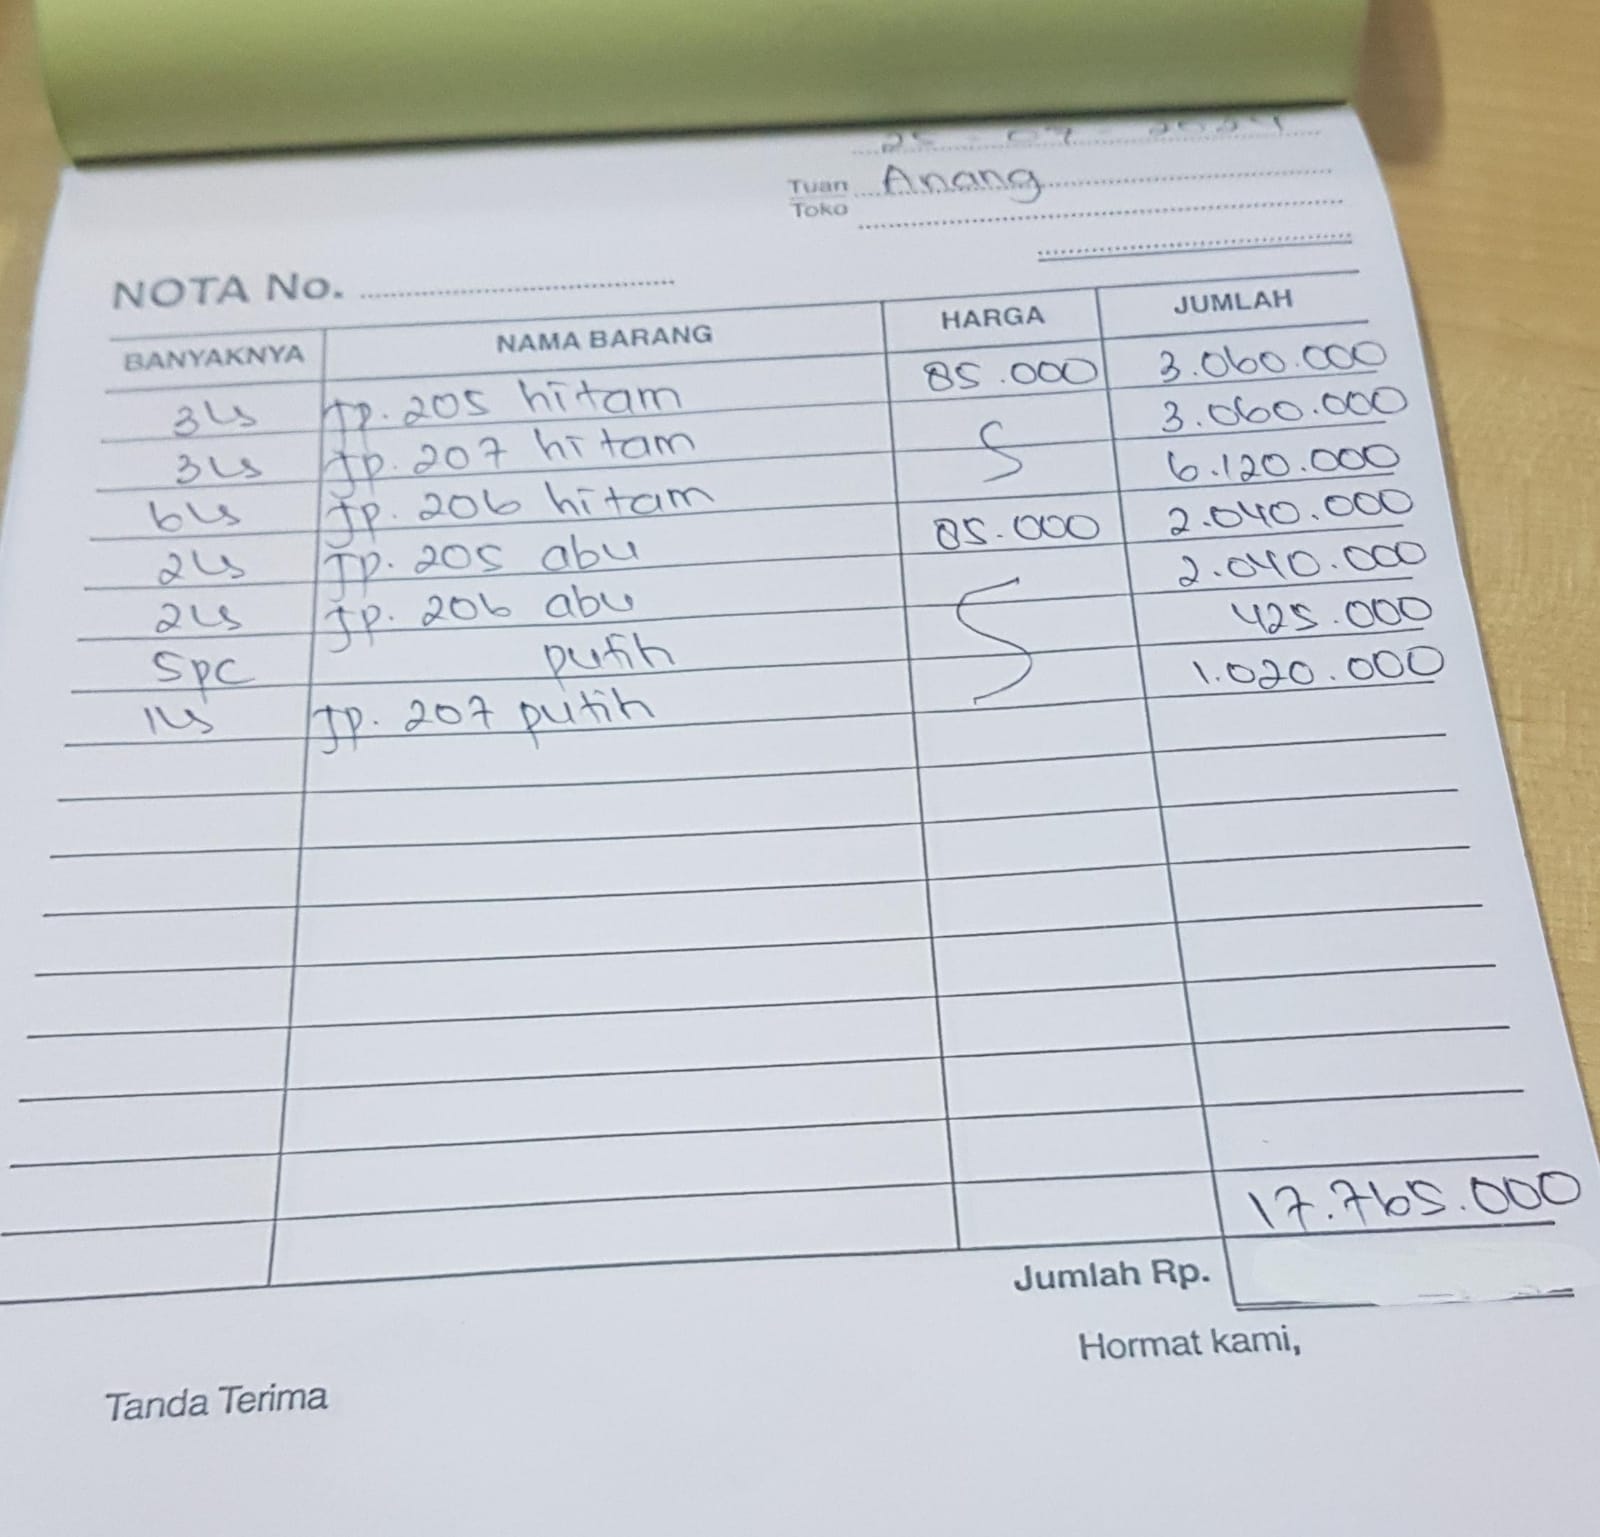 25 - 07 - 2024
Tuan Anang
Toko
NOTA No.
BANYAKNYA NAMA BARANG HARGA JUMLAH
3Ls Jp. 205 hitam 85.000 3.060.000
3Ls Jp. 207 hitam 3.060.000
6Ls Jp. 206 hitam 6.120.000
2Ls Jp. 205 abu 85.000 2.040.000
2Ls Jp. 206 abu 2.040.000
5pc putih 425.000
1Ls Jp. 207 putih 1.020.000
17.765.000
Jumlah Rp.
Hormat kami,
Tanda Terima